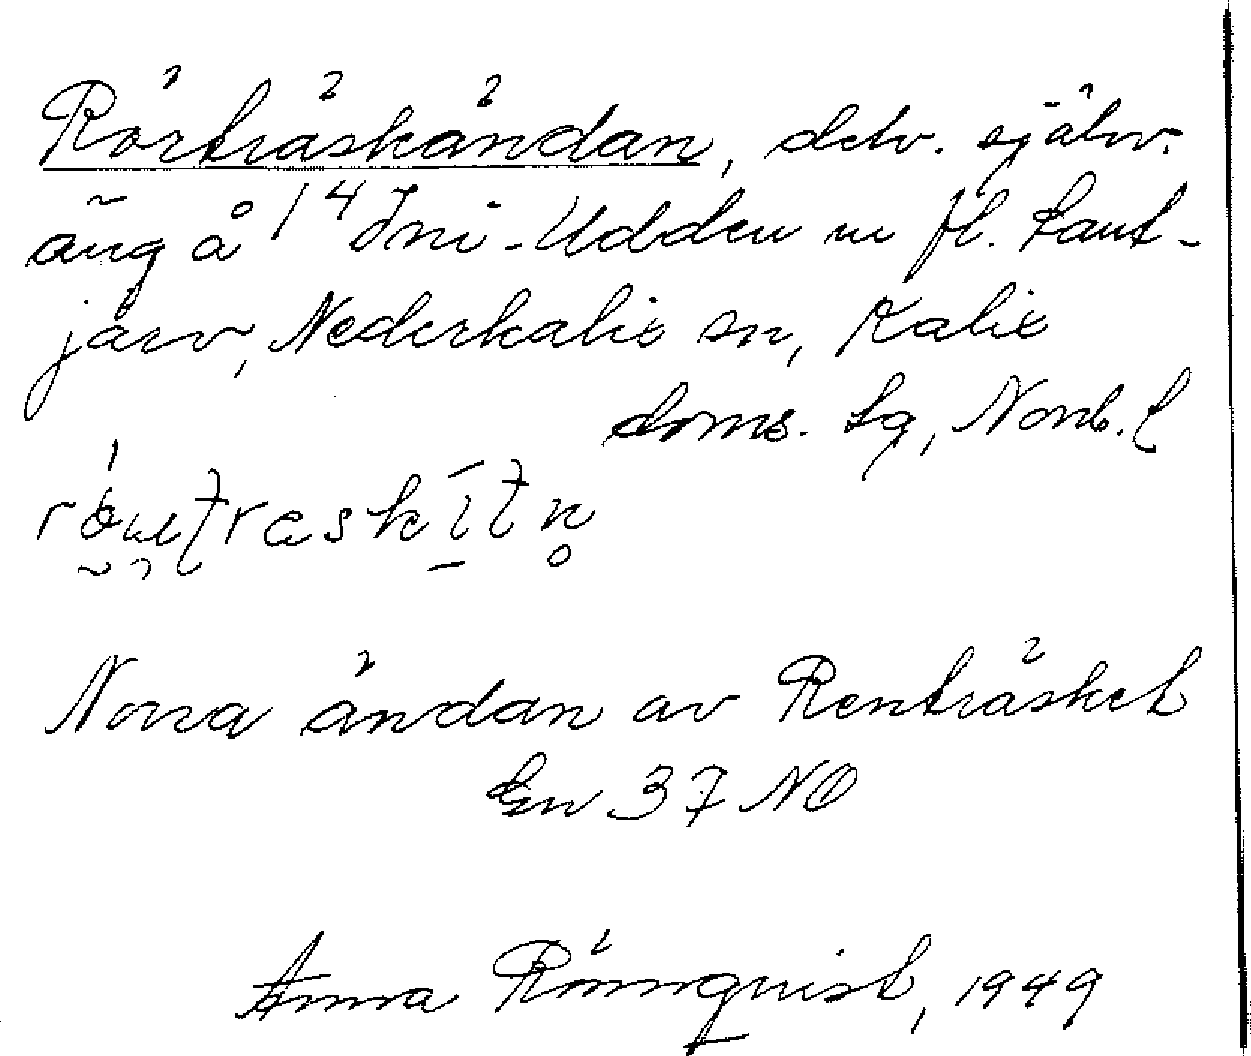 Rörträskändan, delv. själv.
äng å 1⁴ Ini-Udden m fl. Laut-
järv, Nederkalix sn, Kalix
doms. Lg, Norrb. l

Norra ändan av Renträsket
En 37 NO
Anna Rönnquist, 1949